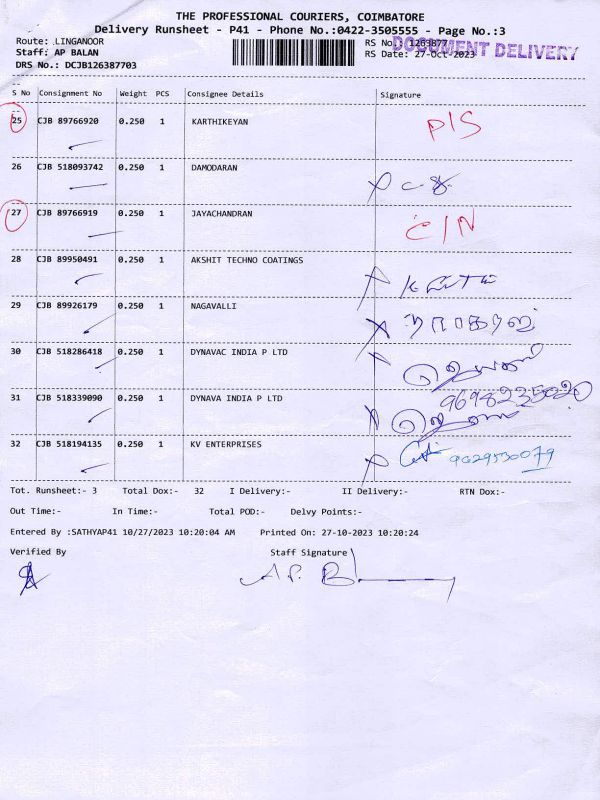 THE PROFESSIONAL COURIERS, COIMBATORE
Delivery Runsheet - P41 - Phone No.:0422-3505555 - Page No.:3
Route: LINGANOOR
RS No.: 1263877
DOCUMENT DELIVERY
Staff: AP BALAN
RS Date: 27-Oct-2023
DRS No.: DCJB126387703
S No Consignment No Weight PCS Consignee Details Signature
25 CJB 89766920 0.250 1 KARTHIKEYAN P/S
26 CJB 518093742 0.250 1 DAMODARAN
27 CJB 89766919 0.250 1 JAYACHANDRAN C/N
28 CJB 89950491 0.250 1 AKSHIT TECHNO COATINGS
29 CJB 89926179 0.250 1 NAGAVALLI
30 CJB 518286418 0.250 1 DYNAVAC INDIA P LTD
31 CJB 518339090 0.250 1 DYNAVA INDIA P LTD 9698235020
32 CJB 518194135 0.250 1 KV ENTERPRISES 9629530079
Tot. Runsheet:- 3 Total Dox:- 32 I Delivery:- II Delivery:- RTN Dox:-
Out Time:- In Time:- Total POD:- Delvy Points:-
Entered By :SATHYAP41 10/27/2023 10:20:04 AM Printed On: 27-10-2023 10:20:24
Verified By Staff Signature